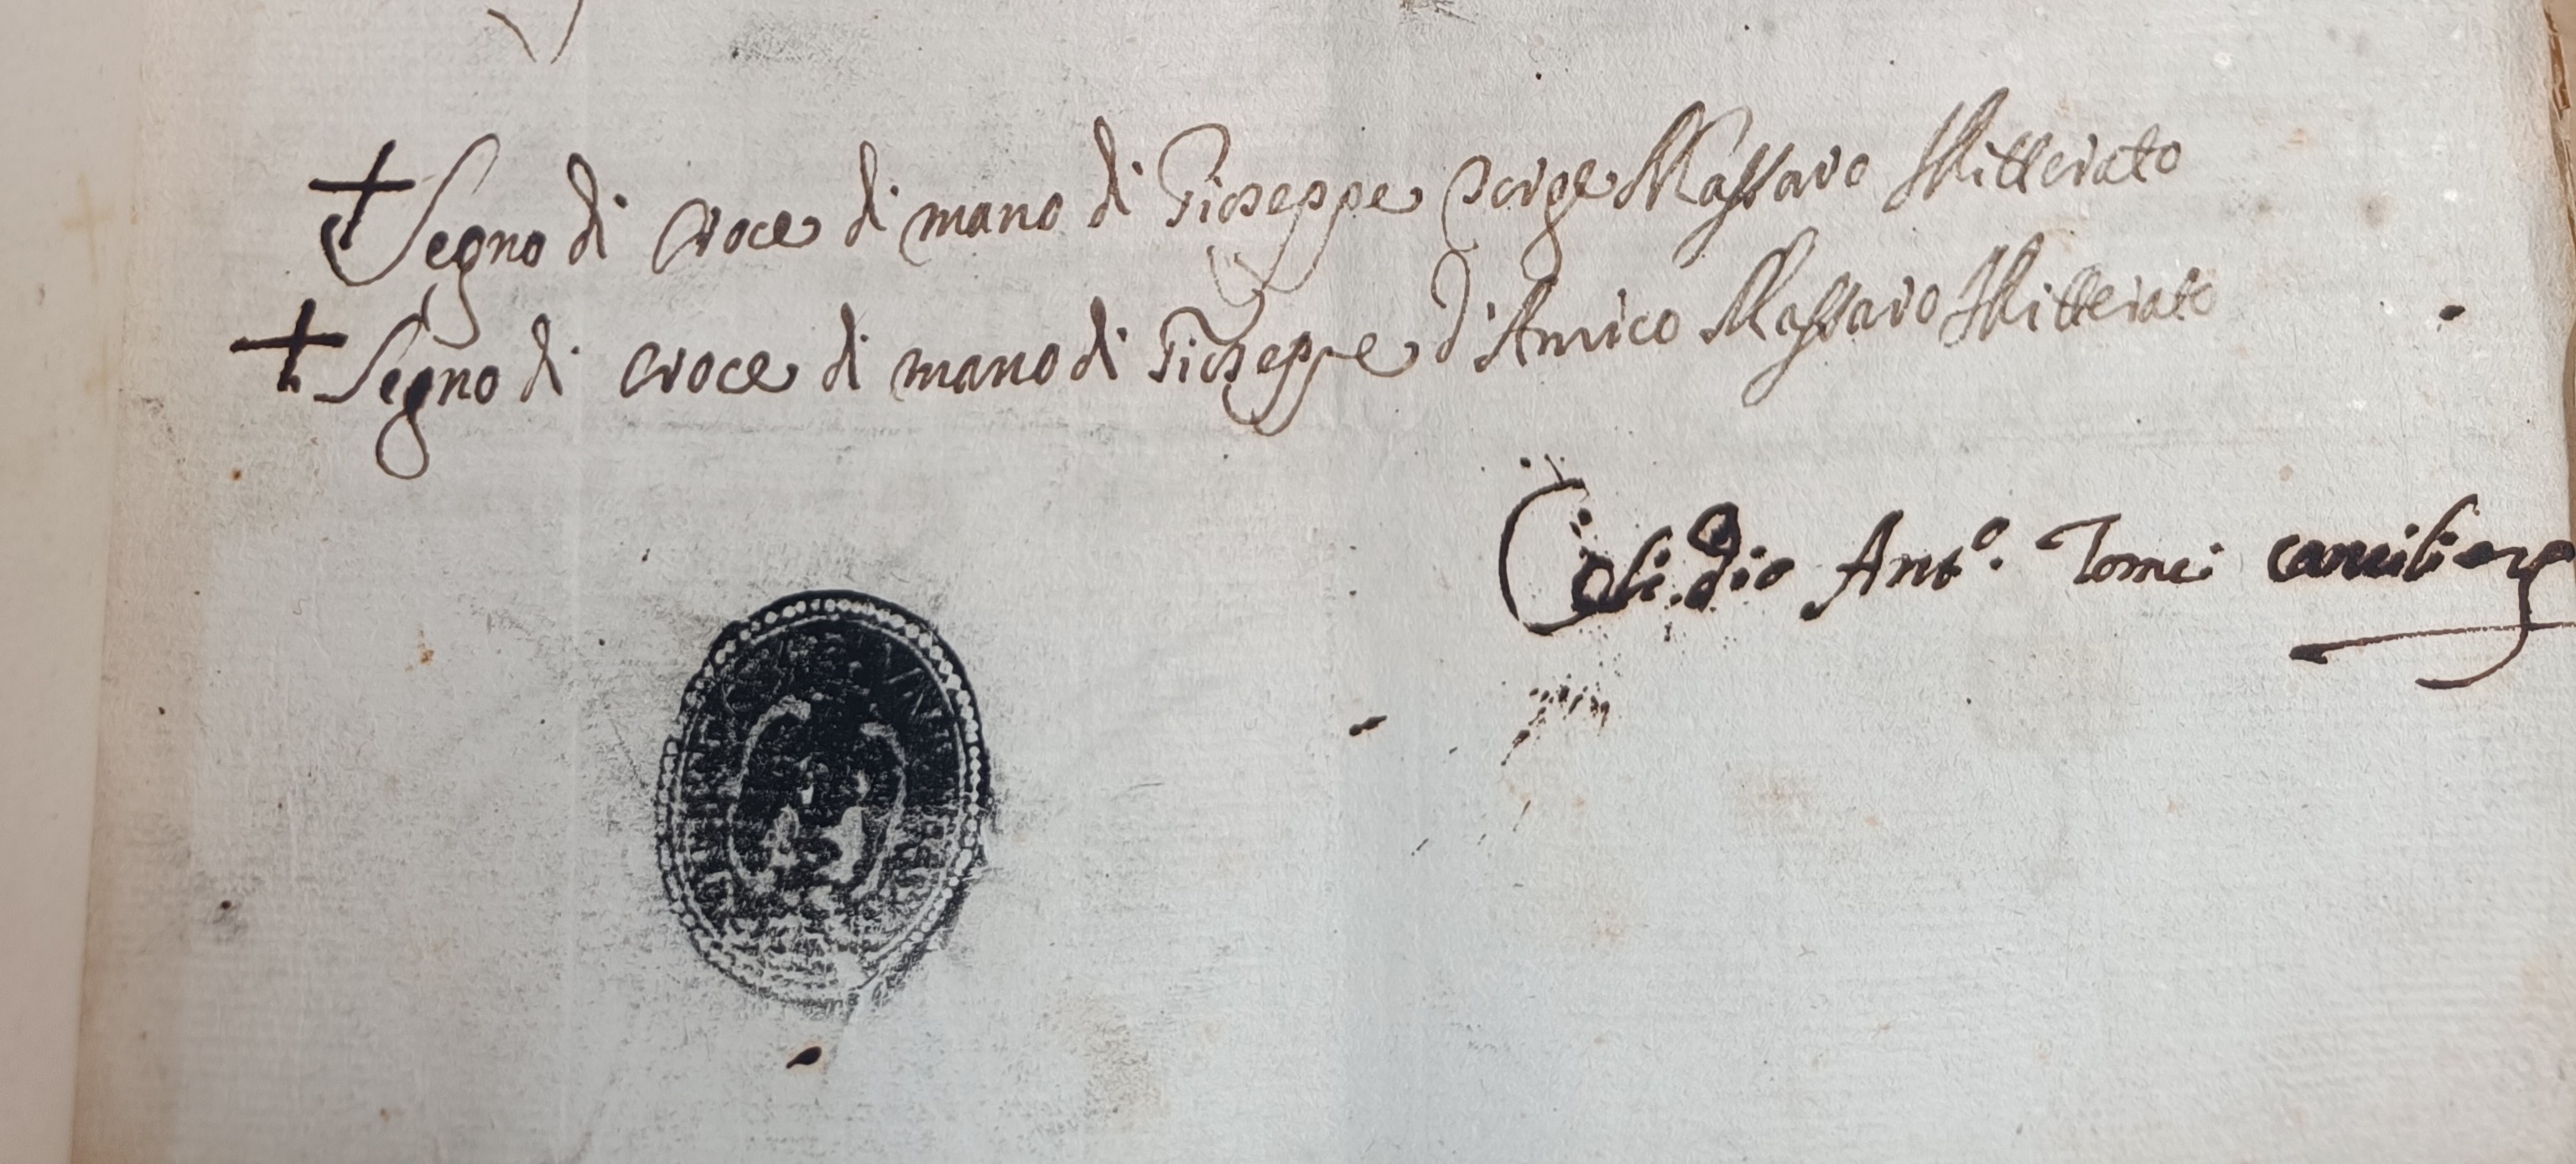 + Segno di croce di mano di Gioseppe Sorge Massaro Illitterato
+ Segno di croce di mano di Gioseppe d'Amico Massaro Illitterato
Ant.º Tomei cancilire